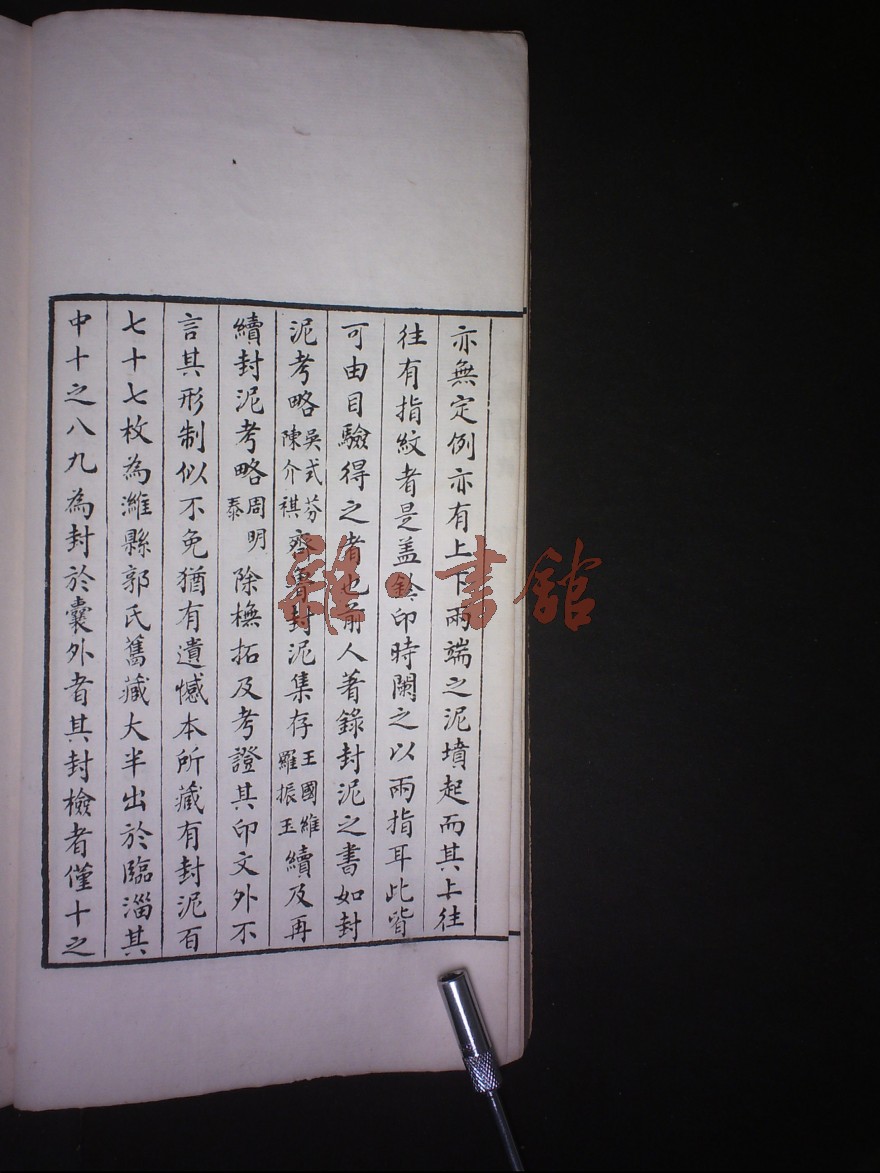 亦無定例亦有上下兩端之泥墳起而其上往
往有指紋者是盖鈐印時闌之以兩指耳此皆
可由目驗得之者也前人著錄封泥之書如封
泥考略吳式芬陳介祺齊魯封泥集存王國維羅振玉續及再
續封泥考略周明泰除橅拓及考證其印文外不
言其形制似不免猶有遺憾本所藏有封泥百
七十七枚為濰縣郭氏舊藏大半出於臨淄其
中十之八九為封於囊外者其封檢者僅十之
雜·書舘